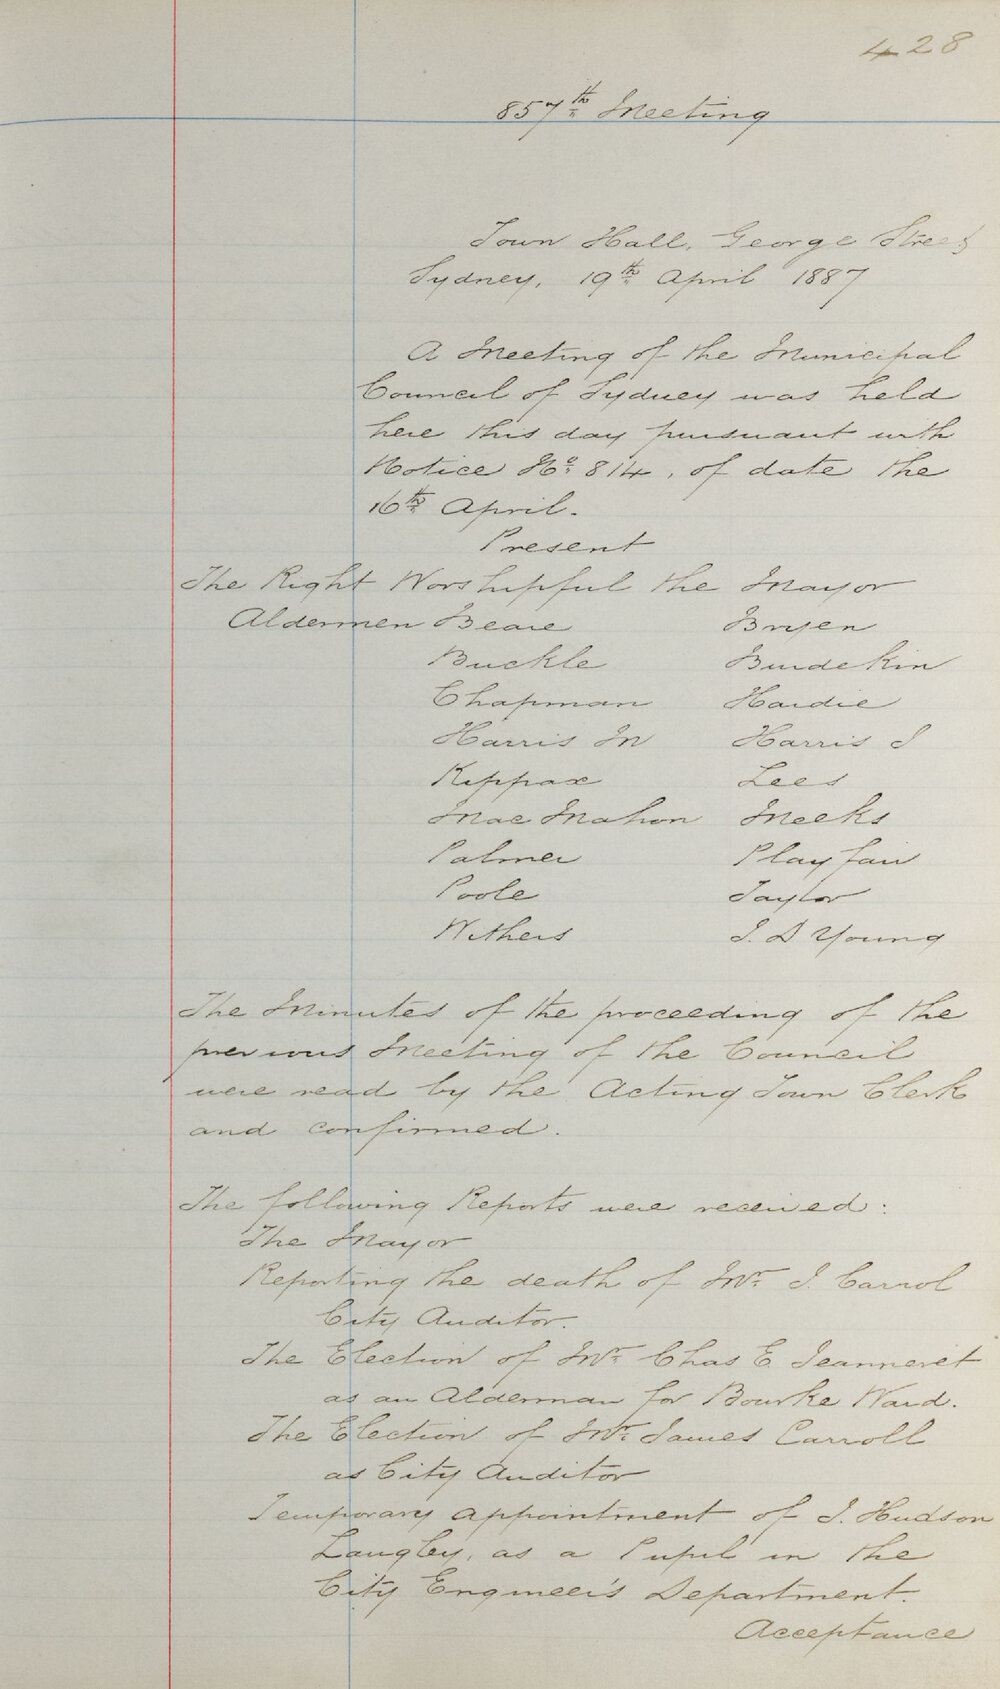 428
857th Meeting
Town Hall, George Street
Sydney, 19th April 1887
A Meeting of the Municipal
Council of Sydney was held
here this day pursuant with
Notice No. 814, of date the
16th April.
Present
The Right Worshipful the Mayor
Aldermen Beare Bryen
Buckle Burdekin
Chapman Hardie
Harris M Harris J
Kippax Lees
Mac Mahon Meeks
Palmer Playfair
Poole Taylor
Withers J. D Young
The Minutes of the proceeding of the
previous Meeting of the Council
were read by the Acting Town Clerk
and confirmed.
The following Reports were received:
The Mayor
Reporting the death of Mr J. Carrol
City Auditor.
The Election of Mr Chas E. Jeanneret
as an Alderman for Bourke Ward.
The Election of Mr. James Carroll
as City Auditor
Temporary appointment of J. Hudson
Langley, as a Pupil in the
City Engineer's Department.
Acceptance